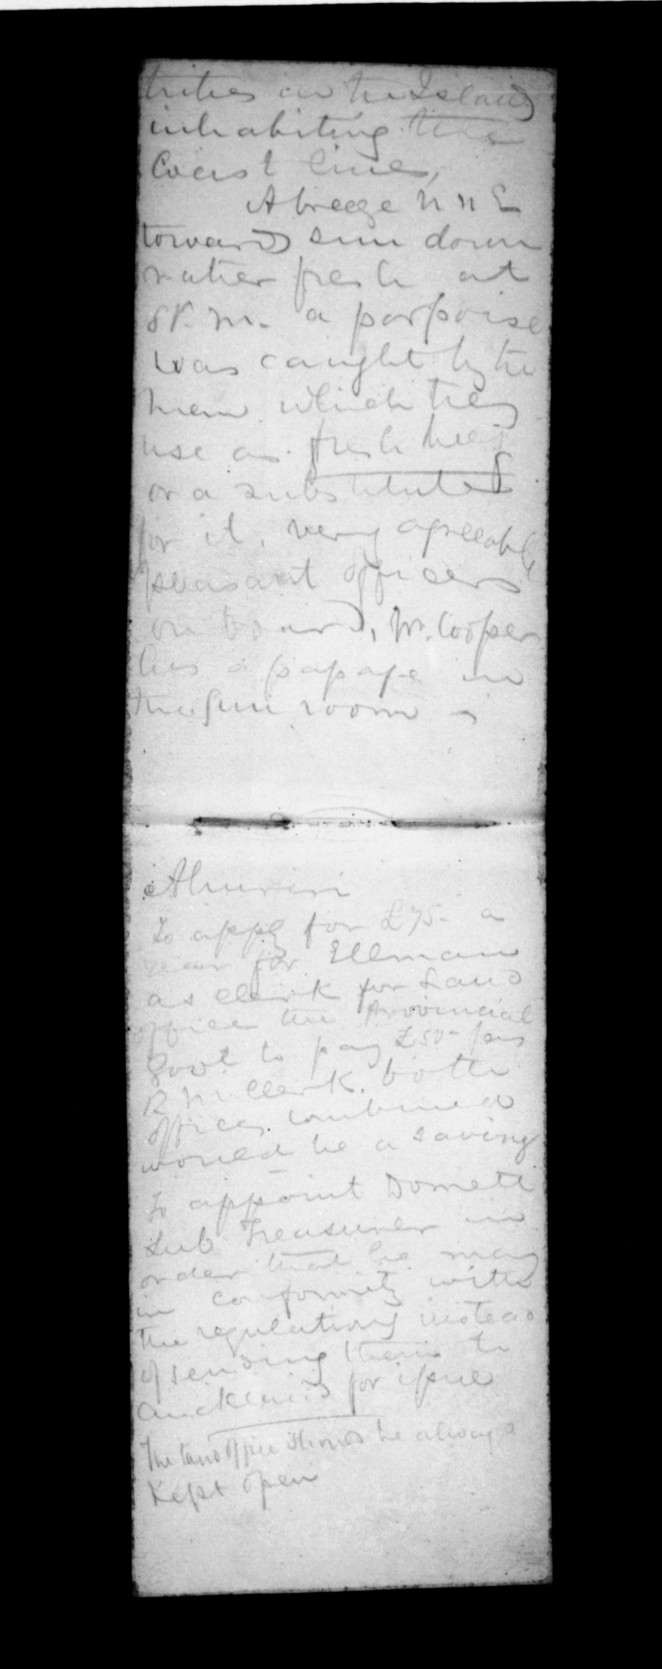 tribes in the Island
inhabiting the
Coast line,
A breeze N N E
towards sun down
rather fresh at
8 P.m. a porpoise
was caught by the
men which they
use as fresh
or a substitute
for it, very agreeable
pleasant officers
on board, Mr. Cooper
has a passage in
the Gun room -
Ahuriri
To apply for £75- a
year for Ellman
as clerk for Land
office the Provincial
Govt to pay £50-
R M Clerk. both
offices. combined
would be a saving
To appoint Domett
Sub Treasurer in
order that he may
in conformity with
the regulations instead
of sending them to
Auckland for issue
The Land office should be always
Kept open